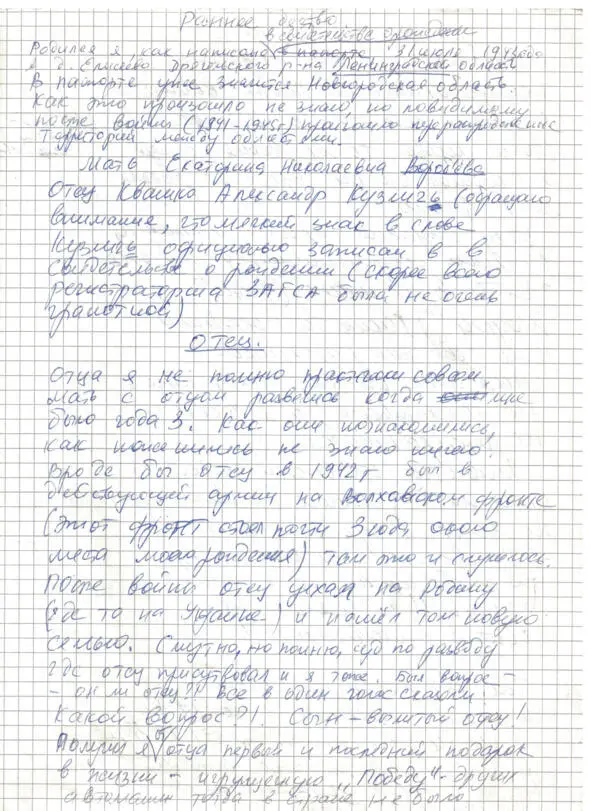 Раннее детство.
в свидетельстве о рождении
Родился я, как написано в паспорте 31 июля 1943 года
в д. Ерысово Дрегельского р-на Ленинградской области
В паспорте уже значится Новгородская область.
Как это произошло не знаю, но повидимому
после войны (1941-1945г) произошло перераспределение
территорий между областями.
Мать Екатерина Николаевна Воробьёва
Отец Квашко Александр Кузмичь (обращаю
внимание, что мягкий знак в слове
Кузмичь официально записан в в
свидетельстве о рождении (скорее всего
регистраторша ЗАГСА была не очень
грамотной)
Отец.
Отца я не помню практически совсем.
Мать с отцом развелись когда мне
было года 3. Как они познакомились,
как поженились не знаю ничего.
Вроде бы отец в 1942г был в
действующей армии на Волховском фронте
(этот фронт стоял почти 3 года около
места моего рождения) там это и случилось.
После войны отец уехал на Родину
(где то на Украине) и нашёл там новую
семью. Смутно, но помню, суд по разводу
где отец присутствовал и я тоже. Был вопрос -
- он ли отец?! Все в один голос сказали
Какой вопрос?! Сын - вылитый отец!
Получил я от отца первый и последний подарок
в жизни - игрушечную "Победу" - других
автомашин тогда в стране не было